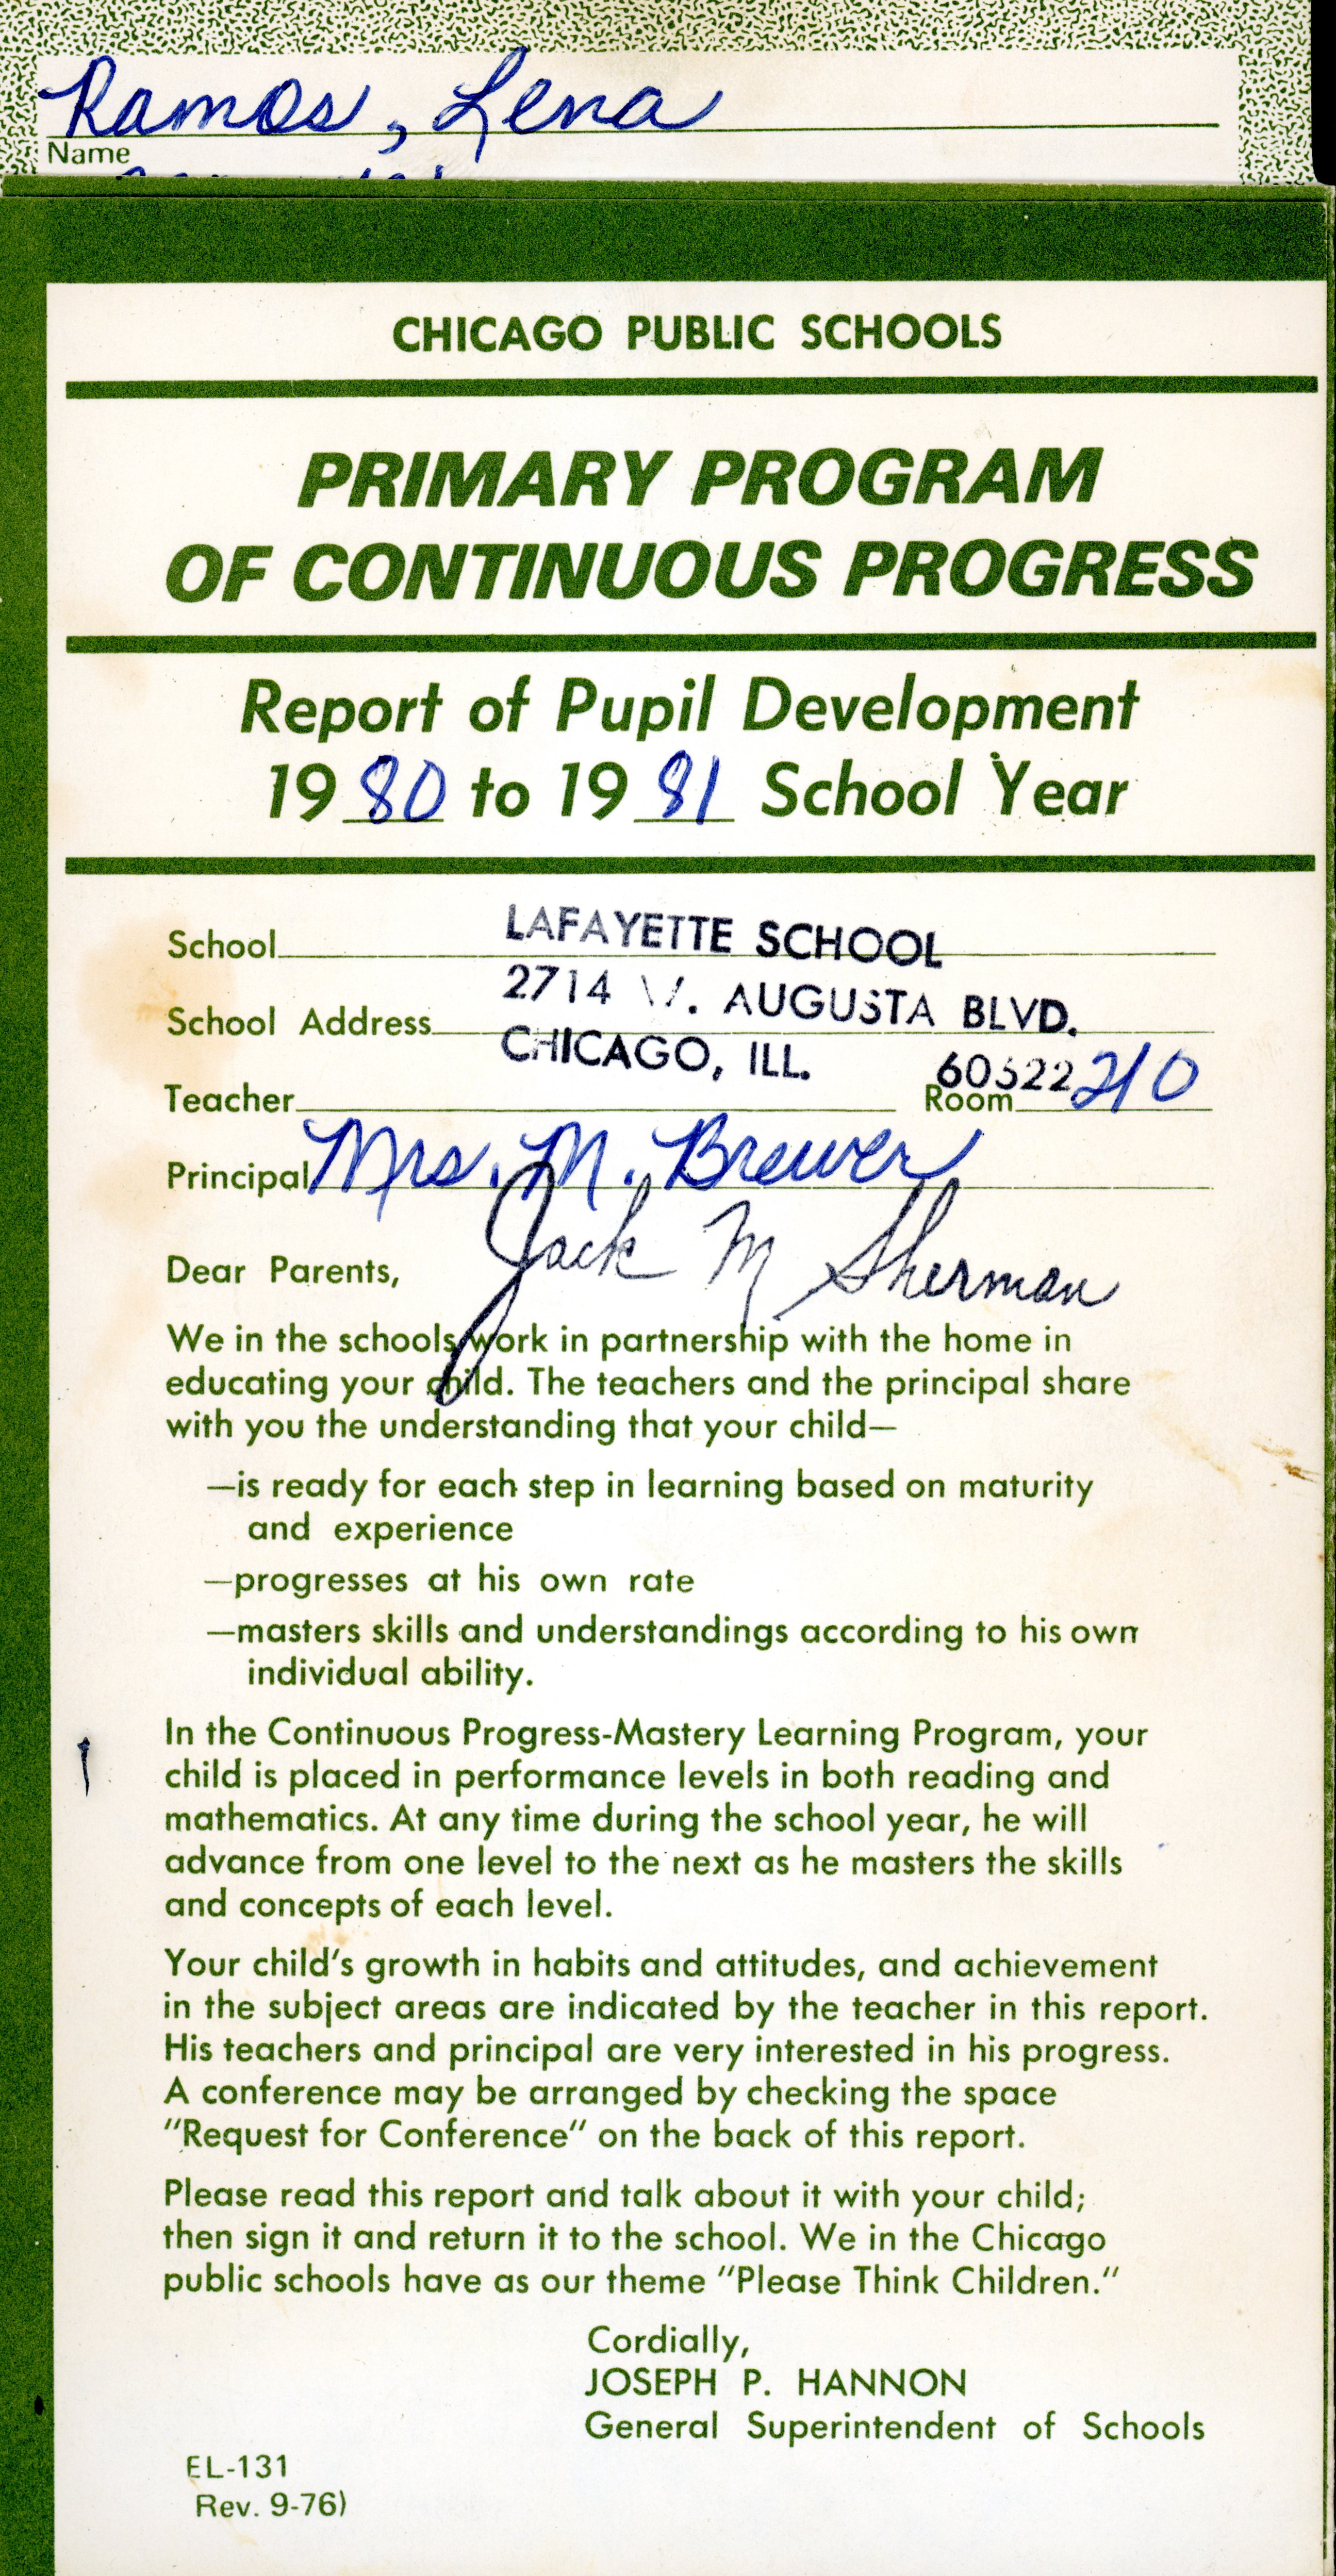 Ramos, Lena
Name
CHICAGO PUBLIC SCHOOLS
PRIMARY PROGRAM
OF CONTINUOUS PROGRESS
Report of Pupil Development
1980 to 1981 School Year
School LAFAYETTE SCHOOL
School Address 2714 W. AUGUSTA BLVD.
CHICAGO, ILL. 60622
Teacher Room 210
Principal Mrs. M. Brewer
Jack M Sherman
Dear Parents,
We in the schools work in partnership with the home in
educating your child. The teachers and the principal share
with you the understanding that your child—
—is ready for each step in learning based on maturity
and experience
—progresses at his own rate
—masters skills and understandings according to his own
individual ability.
In the Continuous Progress-Mastery Learning Program, your
child is placed in performance levels in both reading and
mathematics. At any time during the school year, he will
advance from one level to the next as he masters the skills
and concepts of each level.
Your child's growth in habits and attitudes, and achievement
in the subject areas are indicated by the teacher in this report.
His teachers and principal are very interested in his progress.
A conference may be arranged by checking the space
"Request for Conference" on the back of this report.
Please read this report and talk about it with your child;
then sign it and return it to the school. We in the Chicago
public schools have as our theme "Please Think Children."
Cordially,
JOSEPH P. HANNON
General Superintendent of Schools
EL-131
Rev. 9-76)